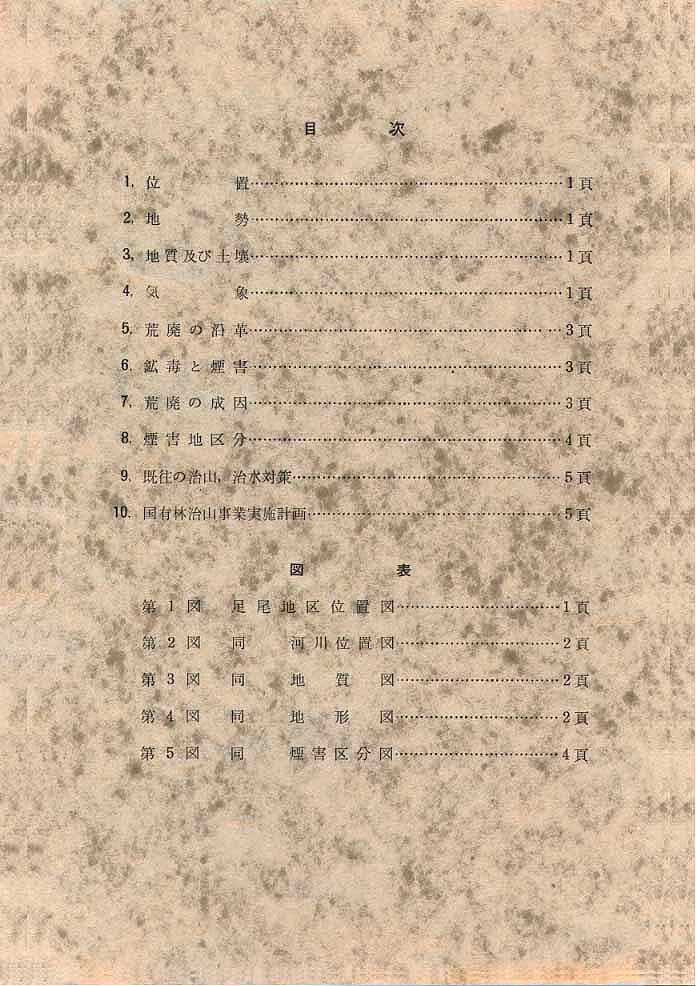 目　次
1. 位置……1頁
2. 地勢……1頁
3. 地質及び土壌……1頁
4. 気象……1頁
5. 荒廃の沿革……3頁
6. 鉱毒と煙害……3頁
7. 荒廃の成因……3頁
8. 煙害地区分……4頁
9. 既往の治山，治水対策……5頁
10. 国有林治山事業実施計画……5頁
図　表
第1図　足尾地区位置図……1頁
第2図　同　河川位置図……2頁
第3図　同　地質図……2頁
第4図　同　地形図……2頁
第5図　同　煙害区分図……4頁